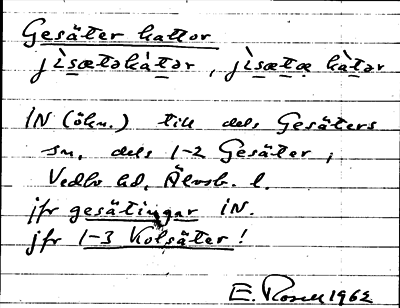 Gesäter kattor
jìsætəkàtər, jìsætæ kàtər
IN (ökn.) till dels Gesäters
sn, dels 1-2 Gesäter,
Vedbo hd, Älvsb. l.
jfr gesätingar IN.
jfr 1-3 Kolsäter!
E. Rosell 1962